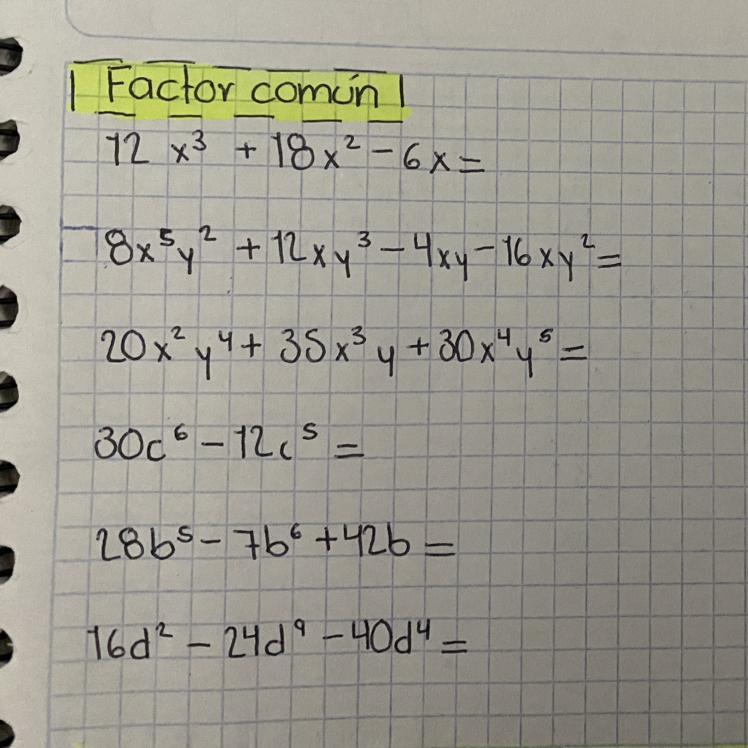 Factor común
12 x³ + 18x² - 6x =
8x⁵y² + 12xy³ - 4xy - 16xy² =
20x²y⁴ + 35x³y + 30x⁴y⁵ =
30c⁶ - 12c⁵ =
28b⁵ - 7b⁶ + 42b =
16d² - 24d⁹ - 40d⁴ =